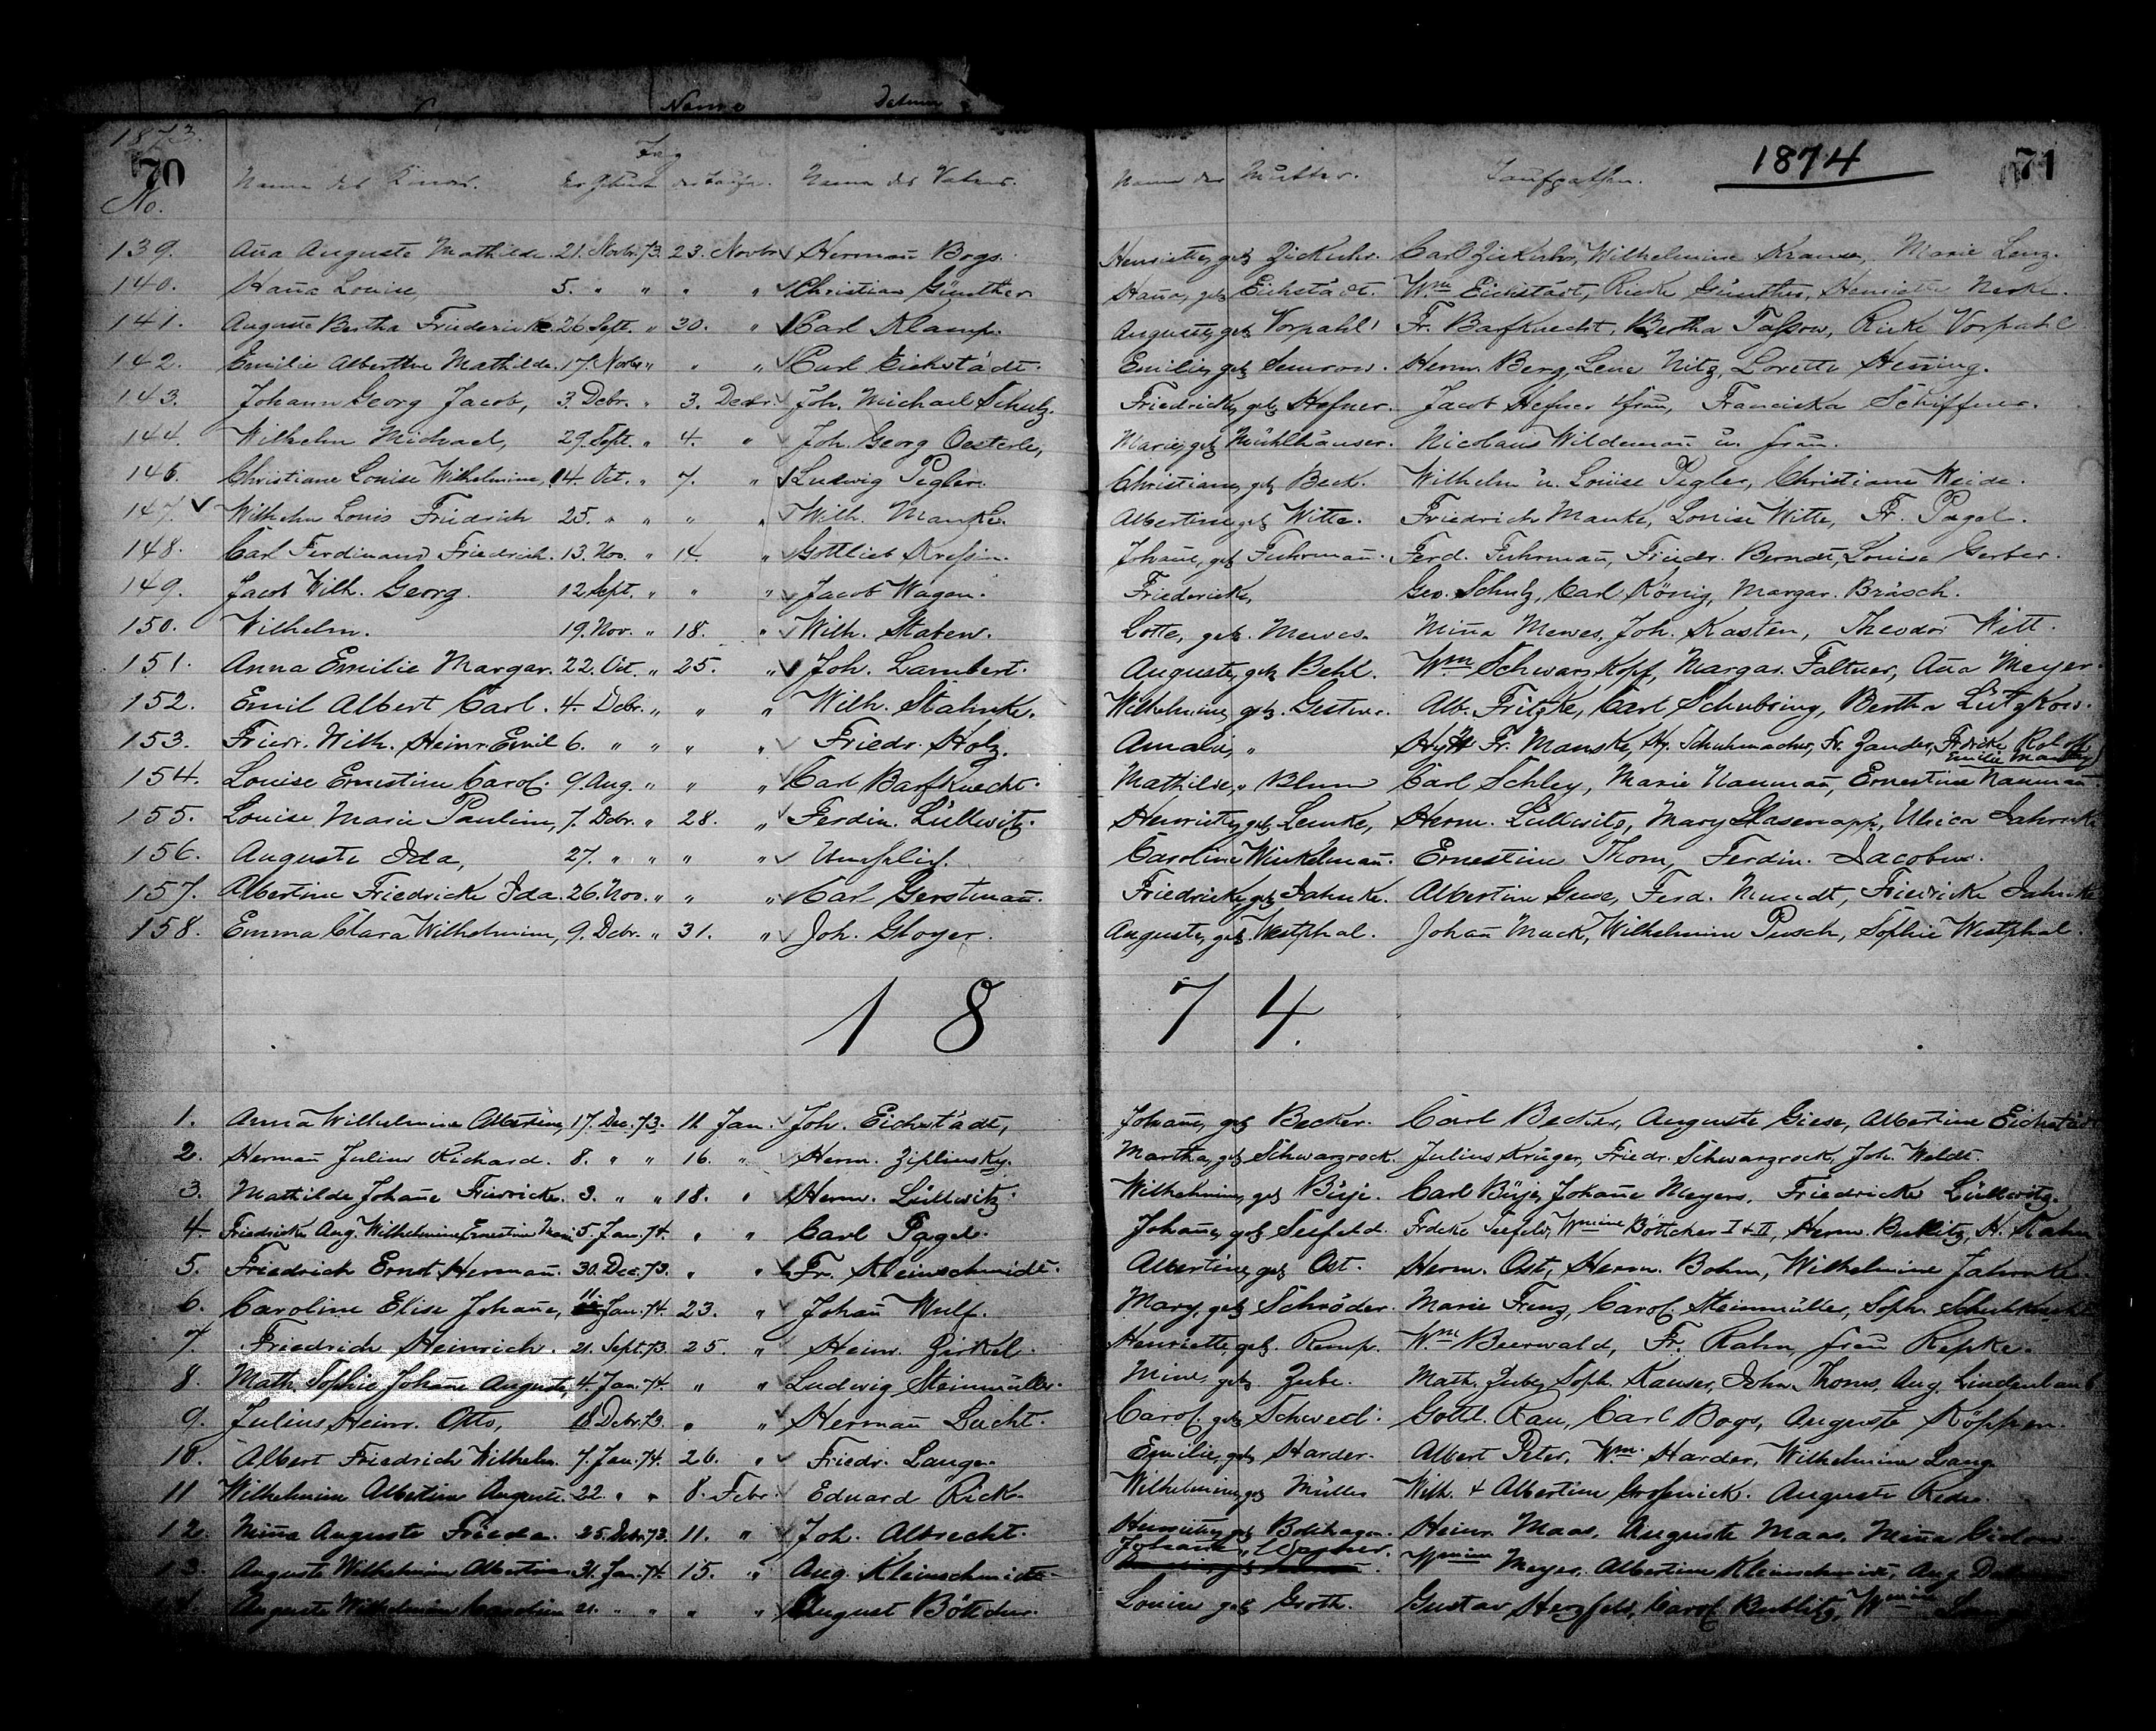 Name Datum
1873.
70 1874 71
Tag
No. Name des Kindes. der Geburt der Taufe. Name des Vaters. Name der Mutter. Taufpathen.
139. Aña Auguste Mathilde. 21. Novbr. 73. 23. Novbr. Hermañ Bogs. Henriette, geb. Zickuhr. Carl Zickuhr, Wilhelmine Krause, Marie Lenz.
140. Haña Louise, 5. " " " " Christian Günther Haña, geb. Eichstädt. Wm Eichstädt, Rieke Günther, Henriette
141. Auguste Bertha Friedericke 26. Sept. " 30. " Carl Klamp. Auguste, geb. Vorpahl Fr. Barfknecht, Bertha Taßow, Rieke Vorpahl
142. Emilie Albertine Mathilde. 17. Novbr " " " Carl Eichstädt. Emilie, geb. Semrow. Herm. Berg, Lene Nitz, Lorette Heñing.
143. Johann Georg Jacob, 3. Debr. " 3. Debr. Joh. Michael Schulz. Friedricke, geb. Hefner. Jacob Hefner u frau, Franciska Schiffner.
144. Wilhelm Michael, 29. Sept. " 4. " Joh. Georg Oesterle, Marie, geb. Mühlhäuser. Nicolaus Wildemañ u. frau.
146. Christiane Louise Wilhelmine, 14. Oct. " 7. " Ludwig Pegler. Christiane, geb. Beck. Wilhelm u. Louise Pegler, Christiane Weide.
147. Wilhelm Louis Friedrich 25. " " " " Wilh. Manke. Albertine geb. Witte. Friedrich Manke, Louise Witte, Fr. Pagel.
148. Carl Ferdinand Friedrich. 13. Nov. " 14. " Gottlieb Kreßin. Johañe, geb. Fuhrmañ. Ferd. Fuhrmañ, Friedr. Berndt, Louise Gerber.
149. Jacob Wilh. Georg. 12 Sept. " " " Jacob Wagen. Friedericke, Geo. Schulz, Carl König, Margar. Bräsch.
150. Wilhelm. 19. Nov. " 18. " Wilh. Staben. Lotte, geb. Mewes. Miña Mewes, Joh. Kasten, Theodor Witt.
151. Anna Emilie Margar. 22. Oct. " 25. " Joh. Lambert. Auguste, geb. Behl. Wm Schwarzkopf, Margar. Faltner, Aña Meyer.
152. Emil Albert Carl. 4. Debr. " " " Wilh. Stahnke. Wilhelmine, geb. Alb. Fritzke, Carl Schubring, Bertha Lützkow.
153. Friedr. Wilh. Heinr. Emil 6. " " " " Friedr. Holz. Amalie, " Fr. Manske, Hy. Schuhmacher, Fr. Zander, Frdricke Roloff
Emilie Manthey
154. Louise Ernestine Carol. 9. Aug. " " " Carl Barfknecht. Mathilde, " Blum Carl Schley, Marie Naumañ, Ernestine Naumañ.
155. Louise Marie Pauline, 7. Debr. " 28. " Ferdin. Lüllwitz. Henriette, geb. Lemke, Herm. Lüllwitz, Mary Glasenapp, Ulrica Jahnke
156. Auguste Ida, 27. " " " " Unehelich. Caroline Winkelmañ. Ernestine Thom, Ferdin. Jacobus.
157. Albertine Friedricke Ida. 26. Nov. " " " Carl Gerstmañ. Friedricke, geb. Jahnke. Albertine Guse, Ferd. Mundt, Friedricke Jahnke
158. Emma Clara Wilhelmine, 9. Debr. " 31. " Joh. Gloyer. Auguste, geb. Westphal. Johañ Mack, Wilhelmine Pusch, Sophie Westphal.
1 8 7 4.
1. Anna Wilhelmine Albertine, 17. Dec. 73. 11. Jan. Joh. Eichstädt, Johañe, geb. Becker. Carl Becker, Auguste Giese, Albertine Eichstädt
2. Hermañ Julius Richard. 8. " " 16. " Herm. Ziplinsky. Martha, geb. Schwarzrock. Julius Krüger, Friedr. Schwarzrock, Joh. Weldt.
3. Mathilde Johañe Friedricke. 3. " " 18. " Herm. Lüllwitz. Wilhelmine, geb. Büje. Carl Büje, Johañe Meyers, Friedricke Lüllwitz.
4. Friedricke Aug. Wilhelmine Ernestine Marie 5. Jan. 74. " " Carl Pagel. Johañe, geb. Seefeld. Frdcke Seefeld, Wmine Böttcher I & II, Herm. Bublitz, H. Rahn
5. Friedrich Ernst Hermañ. 30. Dec. 73. " " Fr. Kleinschmidt. Albertine, geb. Ost. Herm. Ost, Herm. Bohm, Wilhelmine Jahnke.
6. Caroline Elise Johañe, 11. Jan. 74. 23. " Johañ Wulf. Mary, geb. Schröder. Marie Frenz, Carol. Steinmüller, Soph. Schuhknecht
7. Friedrich Heinrich. 21. Sept. 73. 25. " Heinr. Zirkel. Henriette, geb. Remp. Wm Beerwald, Fr. Rahn, frau Repke.
8. Math. Sophie Johañe Auguste, 4. Jan. 74. " " Ludwig Steinmüller. Mine, geb. Zube. Math. Zube, Soph. Kauser, John Thoms, Aug. Lindenlaub
9. Julius Heinr. Otto, 18 Debr. 73. " " Hermañ Lucht. Carol. geb. Schwed. Gottl. Rau, Carl Bogs, Auguste Köppen.
10. Albert Friedrich Wilhelm. 7. Jan. 74. 26. " Friedr. Lange. Emilie, geb. Harder. Albert Peter, Wm. Harder, Wilhelmine Lang.
11 Wilhelmine Albertine Auguste. 22. " " 8. Febr. Eduard Rick. Wilhelmine, geb. Müller Wilh. & Albertine Großnick. Auguste
12. Miña Auguste Frieda. 25. Debr. 73. 11. " Joh. Albrecht. Henriette, geb. Bolthagen. Heinr. Maas, Auguste Maas, Miña
13. Auguste Wilhelmine Albertine 31. Jan. 74. 15. " Aug. Kleinschmidt. Johañe, " Wmine Meyer, Albertine Kleinschmidt, Aug.
14. Auguste Wilhelmine Caroline 21. " " " " August Böttcher. Louise geb. Groth. Gustav Herzfeld, Carol. Bublitz, Wmine